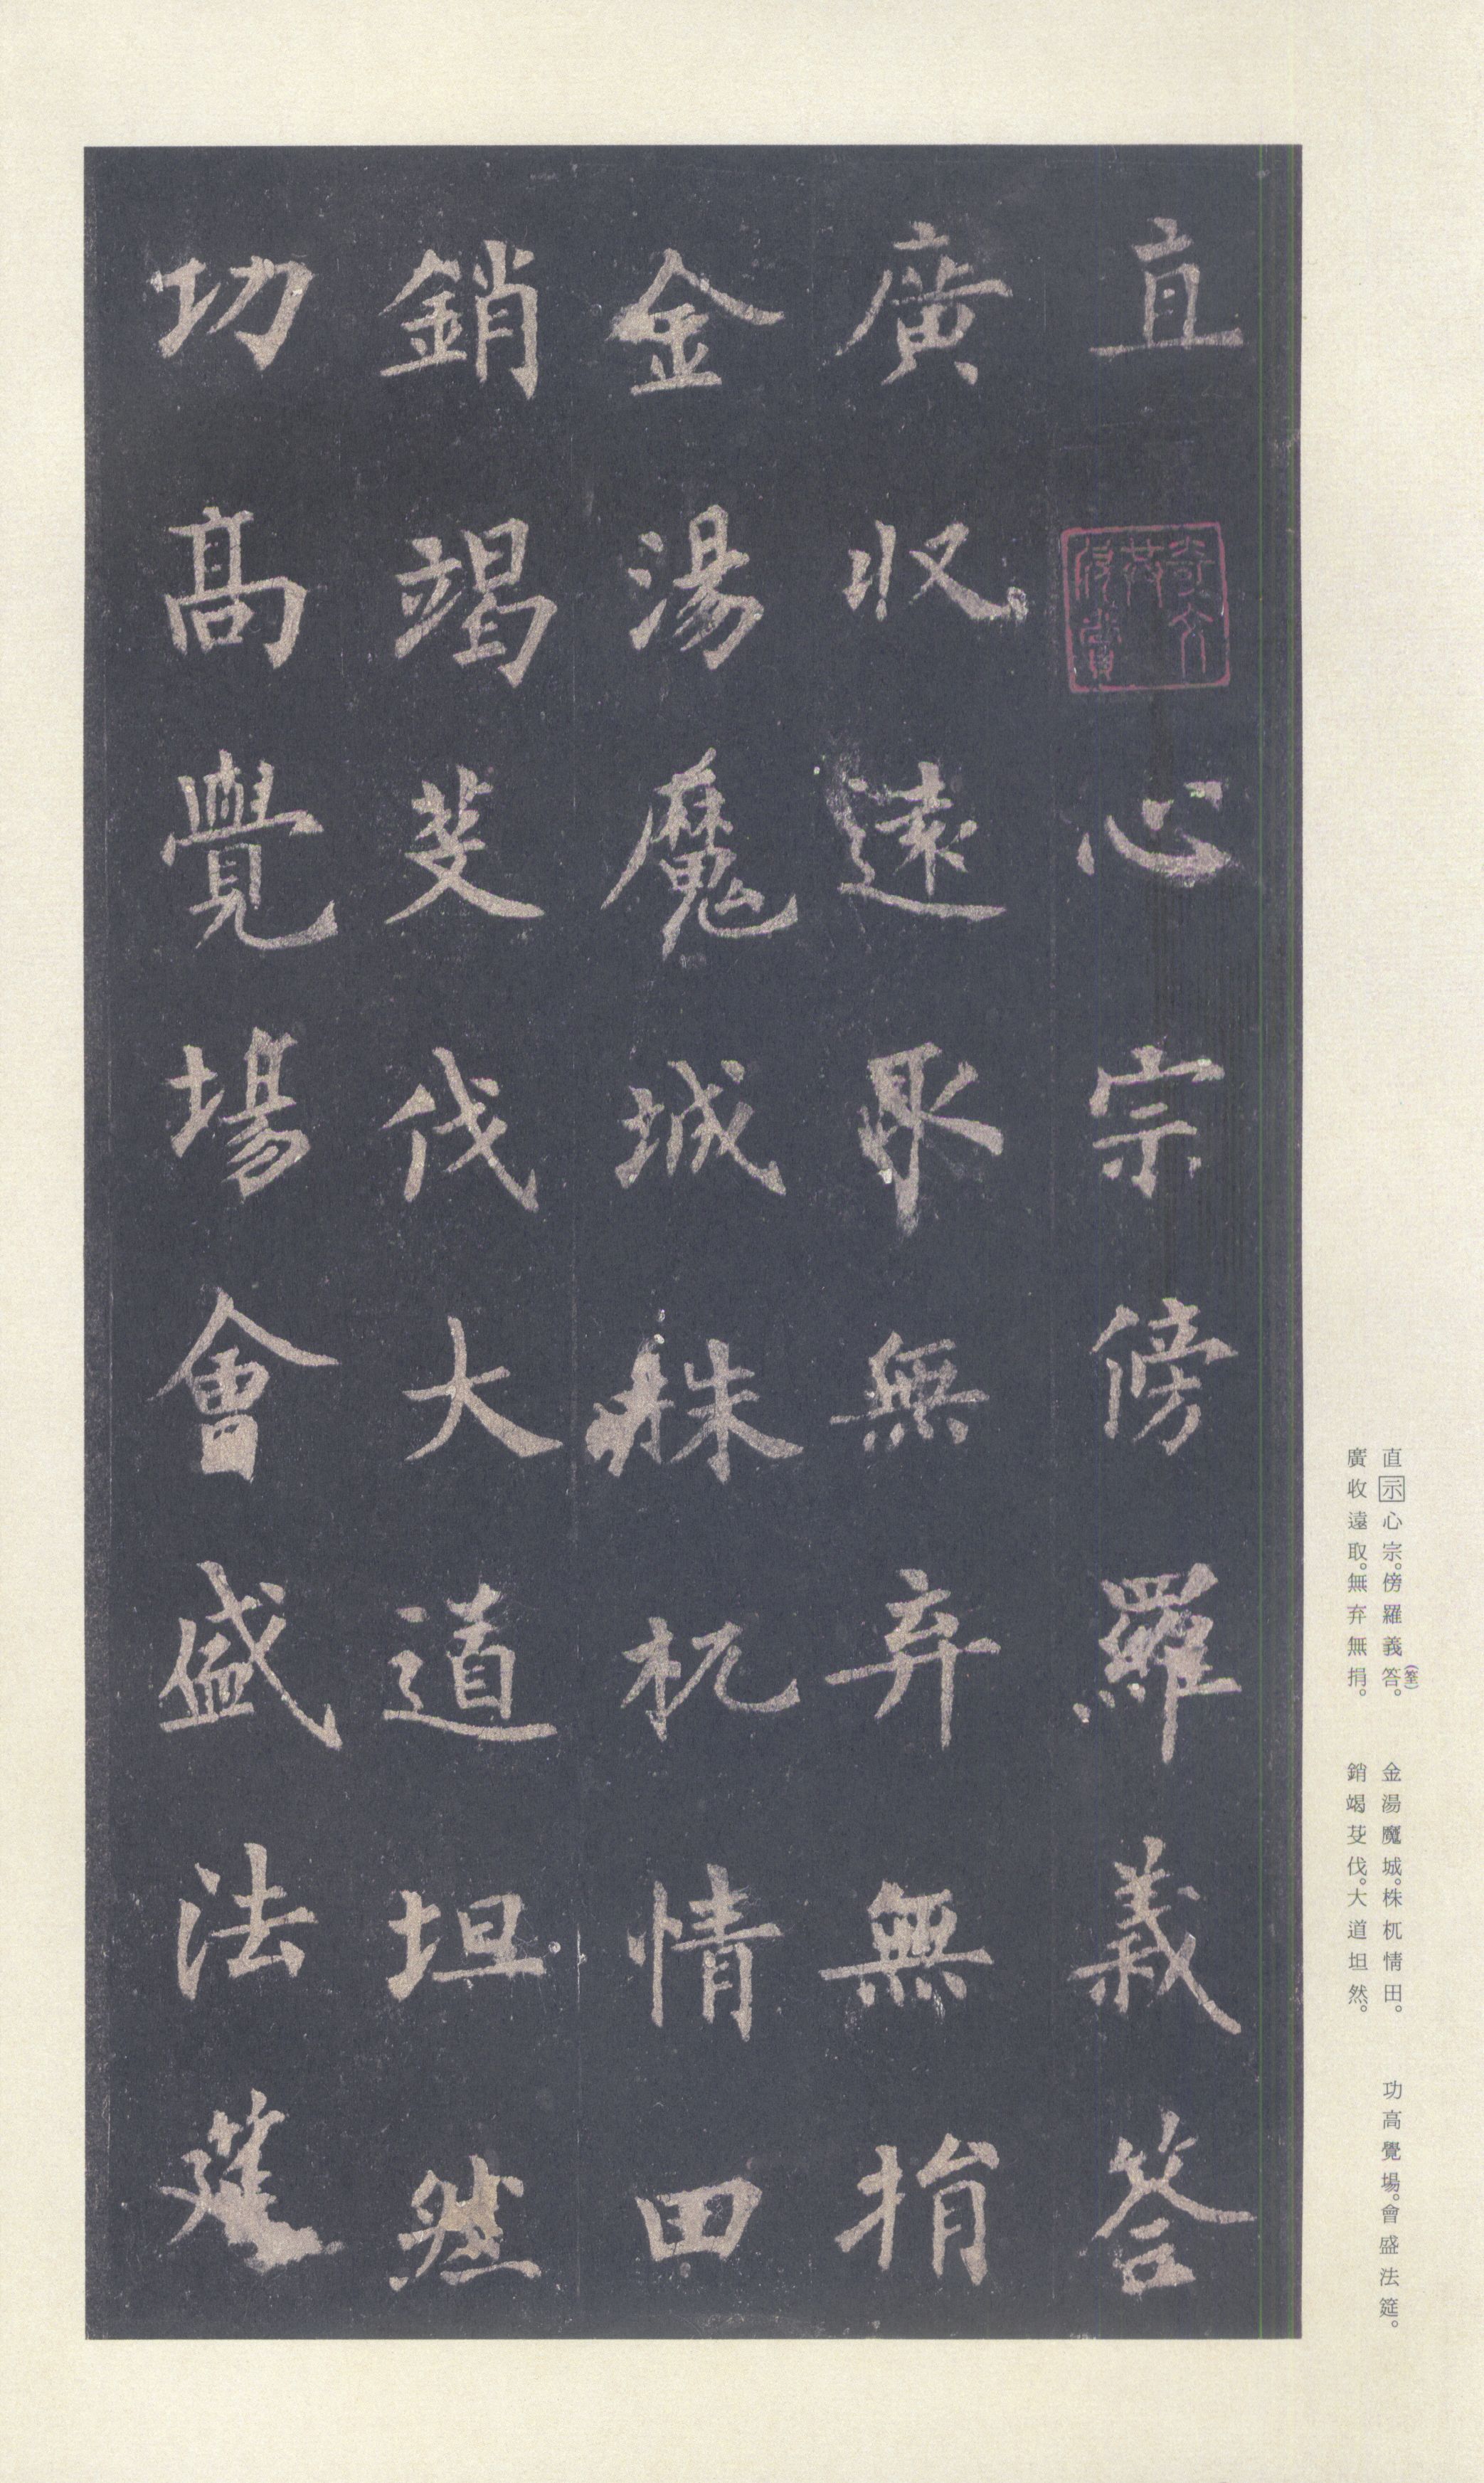 直心宗傍羅義答
廣收遠取無弃無捐
金湯魔城株杌情田
銷竭芟伐大道坦然
功高覺場會盛法筵
直示心宗。傍羅義答。(筌) 金湯魔城。株杌情田。 功高覺場。會盛法筵。
廣收遠取。無弃無捐。 銷竭芟伐。大道坦然。